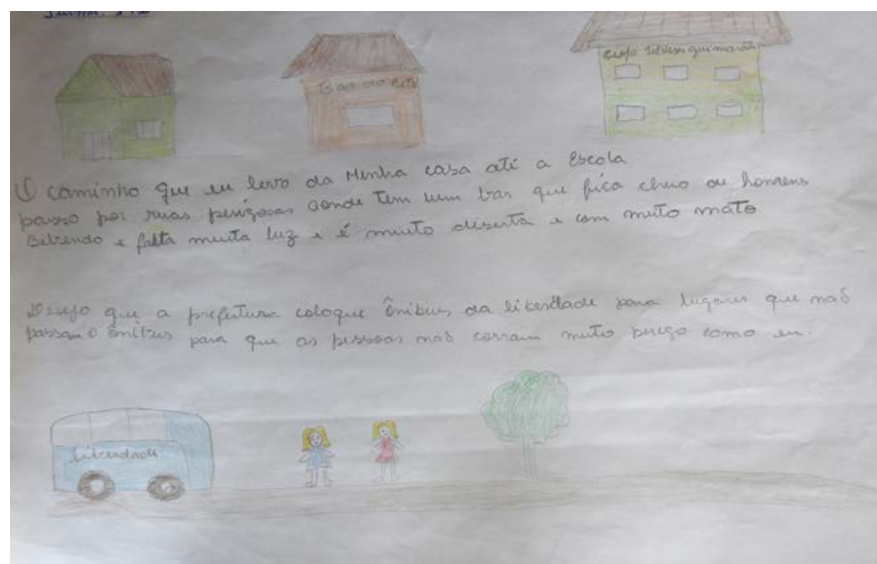 Bar do Beto
Ciep Ulysses Guimarães
O caminho que eu levo da Minha casa até a Escola
passo por ruas perigosas aonde Tem um bar que fica cheio de homens
Bebendo e falta muita luz e é muito deserta e com muito mato
Desejo que a prefeitura coloque ônibus da liberdade para lugares que naõ
passam o ônibus para que as pessoas naõ corram muito perigo como eu.
liberdade